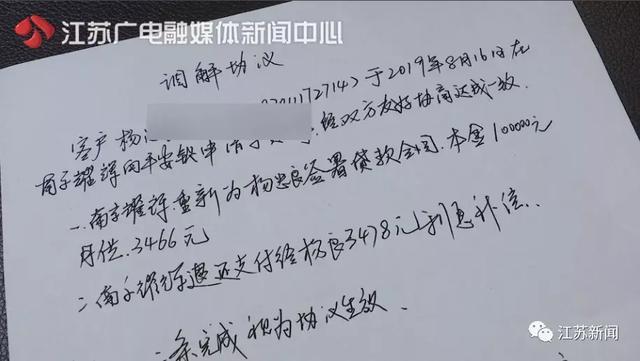 江苏广电融媒体新闻中心
调解协议
客户杨 2011172714）于2019年8月16日在
南京耀诨向平安银申请 经双方友好协商达成一致.
一.南京耀诨.重新为杨忠良签署贷款合同.本金100000元
月供.3466元
二.南京耀 退还支付给杨良3478元 利息补偿.
条完成视为协议生效.
江苏新闻